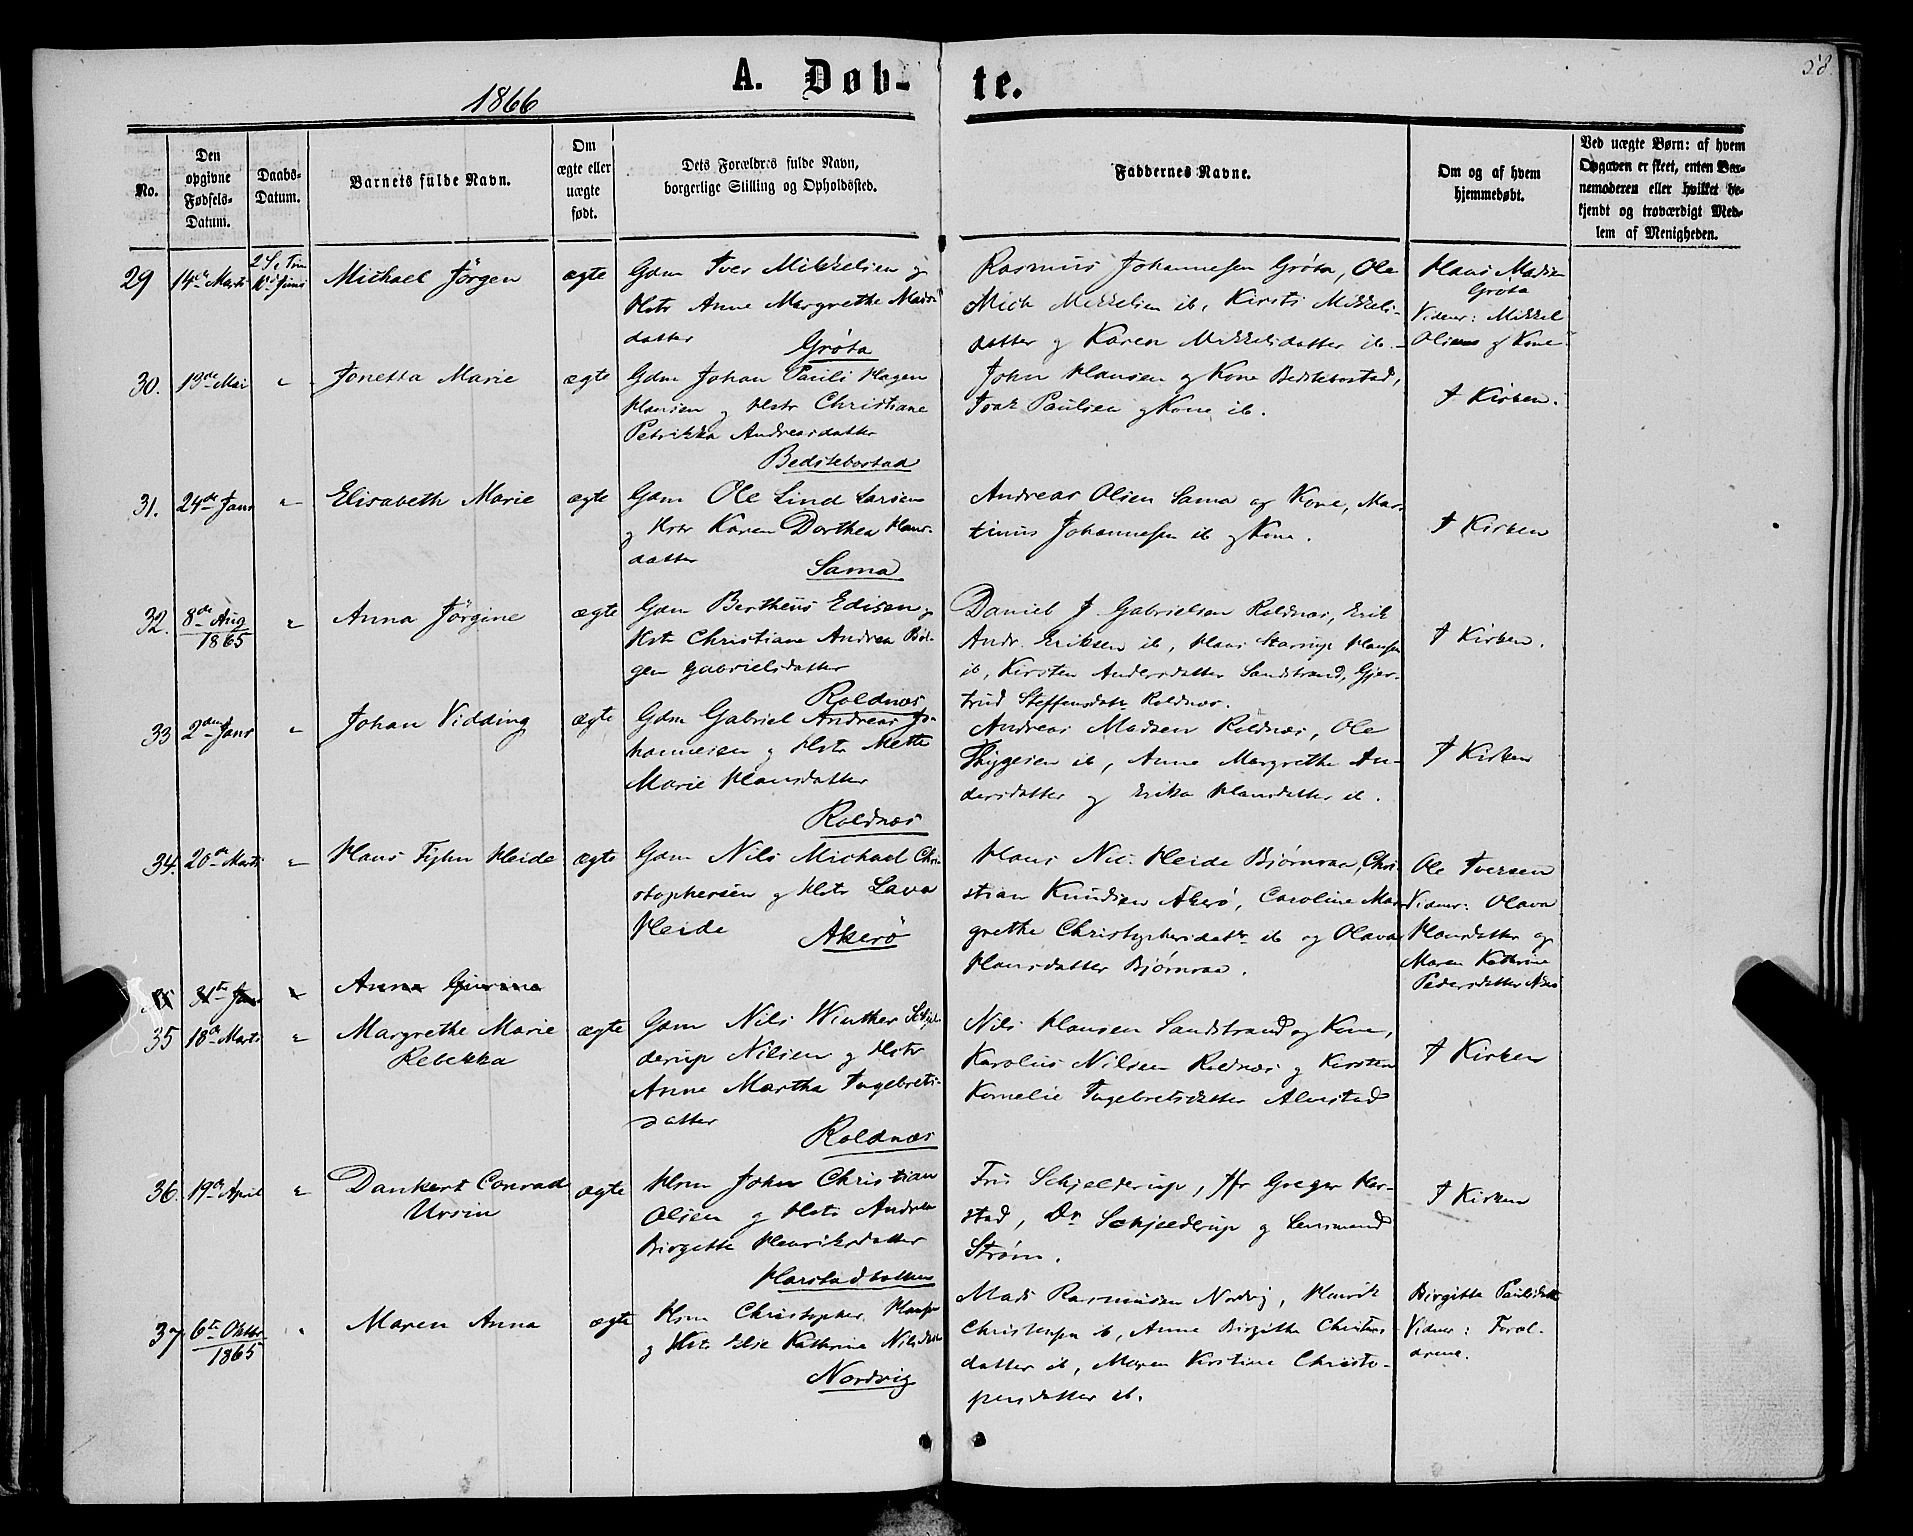 58
1866
A. Døb-
te.
No.
Den opgivne Fødsels-Datum.
Daabs-Datum.
Barnets fulde Navn.
Om ægte eller uægte født.
Dets Forældres fulde Navn, borgerlige Stilling og Opholdssted.
Faddernes Navne.
Om og af hvem hjemmedøbt.
Ved uægte Børn: af hvem Opgaven er skeet, enten Barnemoderen eller hvilket bekjendt og troværdigt Medlem af Menigheden.
29 14de Marts 10de Juni Michael Jørgen ægte
Gdm Iver Mikkelsen og
Hstr Anne Margrethe Mads
datter
Grøta
Rasmus Johannesen Grøta, Ole
Mich Mikkelsen ib, Kirsti Mikkels-
datter og Karen Mikkelsdatter ib.
Hans Madsen
Grøta
Vidner: Mikkel
Olsens og Kone
30. 13de Mai " Jonetta Marie ægte
Gdm Johan Pauli Hagen
Hansen og Hstr Christiane
Petrikka Andreasdatter
Bedstebostad
John Hansen og Kone Bedstebostad,
Isak Paulsen og Kone ib.
I Kirken.
31. 24de Janr " Elisabeth Marie ægte
Gdm Ole Lind Larsen
og Hstr Karen Dorthea Hans-
datter
Sama
Andreas Olsen Sama og Kone, Mar-
tinus Johannesen ib og Kone.
I Kirken
32. 8de Aug 1865 " Anna Jørgine ægte
Gdm Bertheus Edisen og
Hstr Christiane Andrea
gen Gabrielsdatter
Roldnæs
Daniel J Gabrielsen Roldnæs, Erik
Andr. Eriksen ib, Hans Hansen
ib, Kirsten Andersdatter Sandstrand, Gjer-
trud Steffensdatr Roldnæs.
I Kirken.
33 2den Janr " Johan Vidding ægte
Gdm Gabriel Andreas Jo-
hannesen og Hstr Mette
Marie Hansdatter
Roldnæs
Andreas Madsen Roldnæs, Ole
Thygesen ib, Anne Margrethe An-
dersdatter og Erika Hansdatter ib.
I Kirken
34. 20de Marts " Hans Fyhn Heide ægte
Gdm Nils Michael Chri-
stophersen og Hstr Lava
Heide
Akerø
Hans Nic: Heide Bjørnraa, Chri-
stian Knudsen Akerø, Caroline Mar-
grethe Christophersdatr ib og Olava
Hansdatter Bjørnraa.
Ole Iversen
Vidner: Olava
Hansdatter og
Maren Kathrine
Pedersdatter
31te Janr " Anna Gurina
35 18de Marts " Margrethe Marie
Rebekka
ægte
Gdm Nils Winther Schjel-
derup Nilsen og Hstr
Anne Martha Ingebrets-
datter
Roldnæs
Nils Hansen Sandstrand og Kone,
Karolus Nilsen Roldnæs og Kirsten
Kornelie Ingebretsdatter Alvestad
I Kirken
36. 19de April " Dankert Conrad
Ursin
ægte
Hsm John Christian
Olsen og Hstr Andrea
Birgitte Henriksdatter
Harstadbotten
Fru Schjelderup, Jfr Greger Har-
stad, Dr Schjelderup og Lensmand
Strøm.
I Kirken
37 6te Oktbr 1865 " Maren Anna ægte
Hsm Christopher Hansen
og Hstr Else Kathrine Nilsdatter
Nordvig
Mads Rasmussen Nordvig, Henrik
Christensen ib, Anne Birgithe Christens-
datter ib, Maren Kirstine Christo-
persdatter ib.
Birgitte Paulsdatter
Vidner: Foræl-
drene.